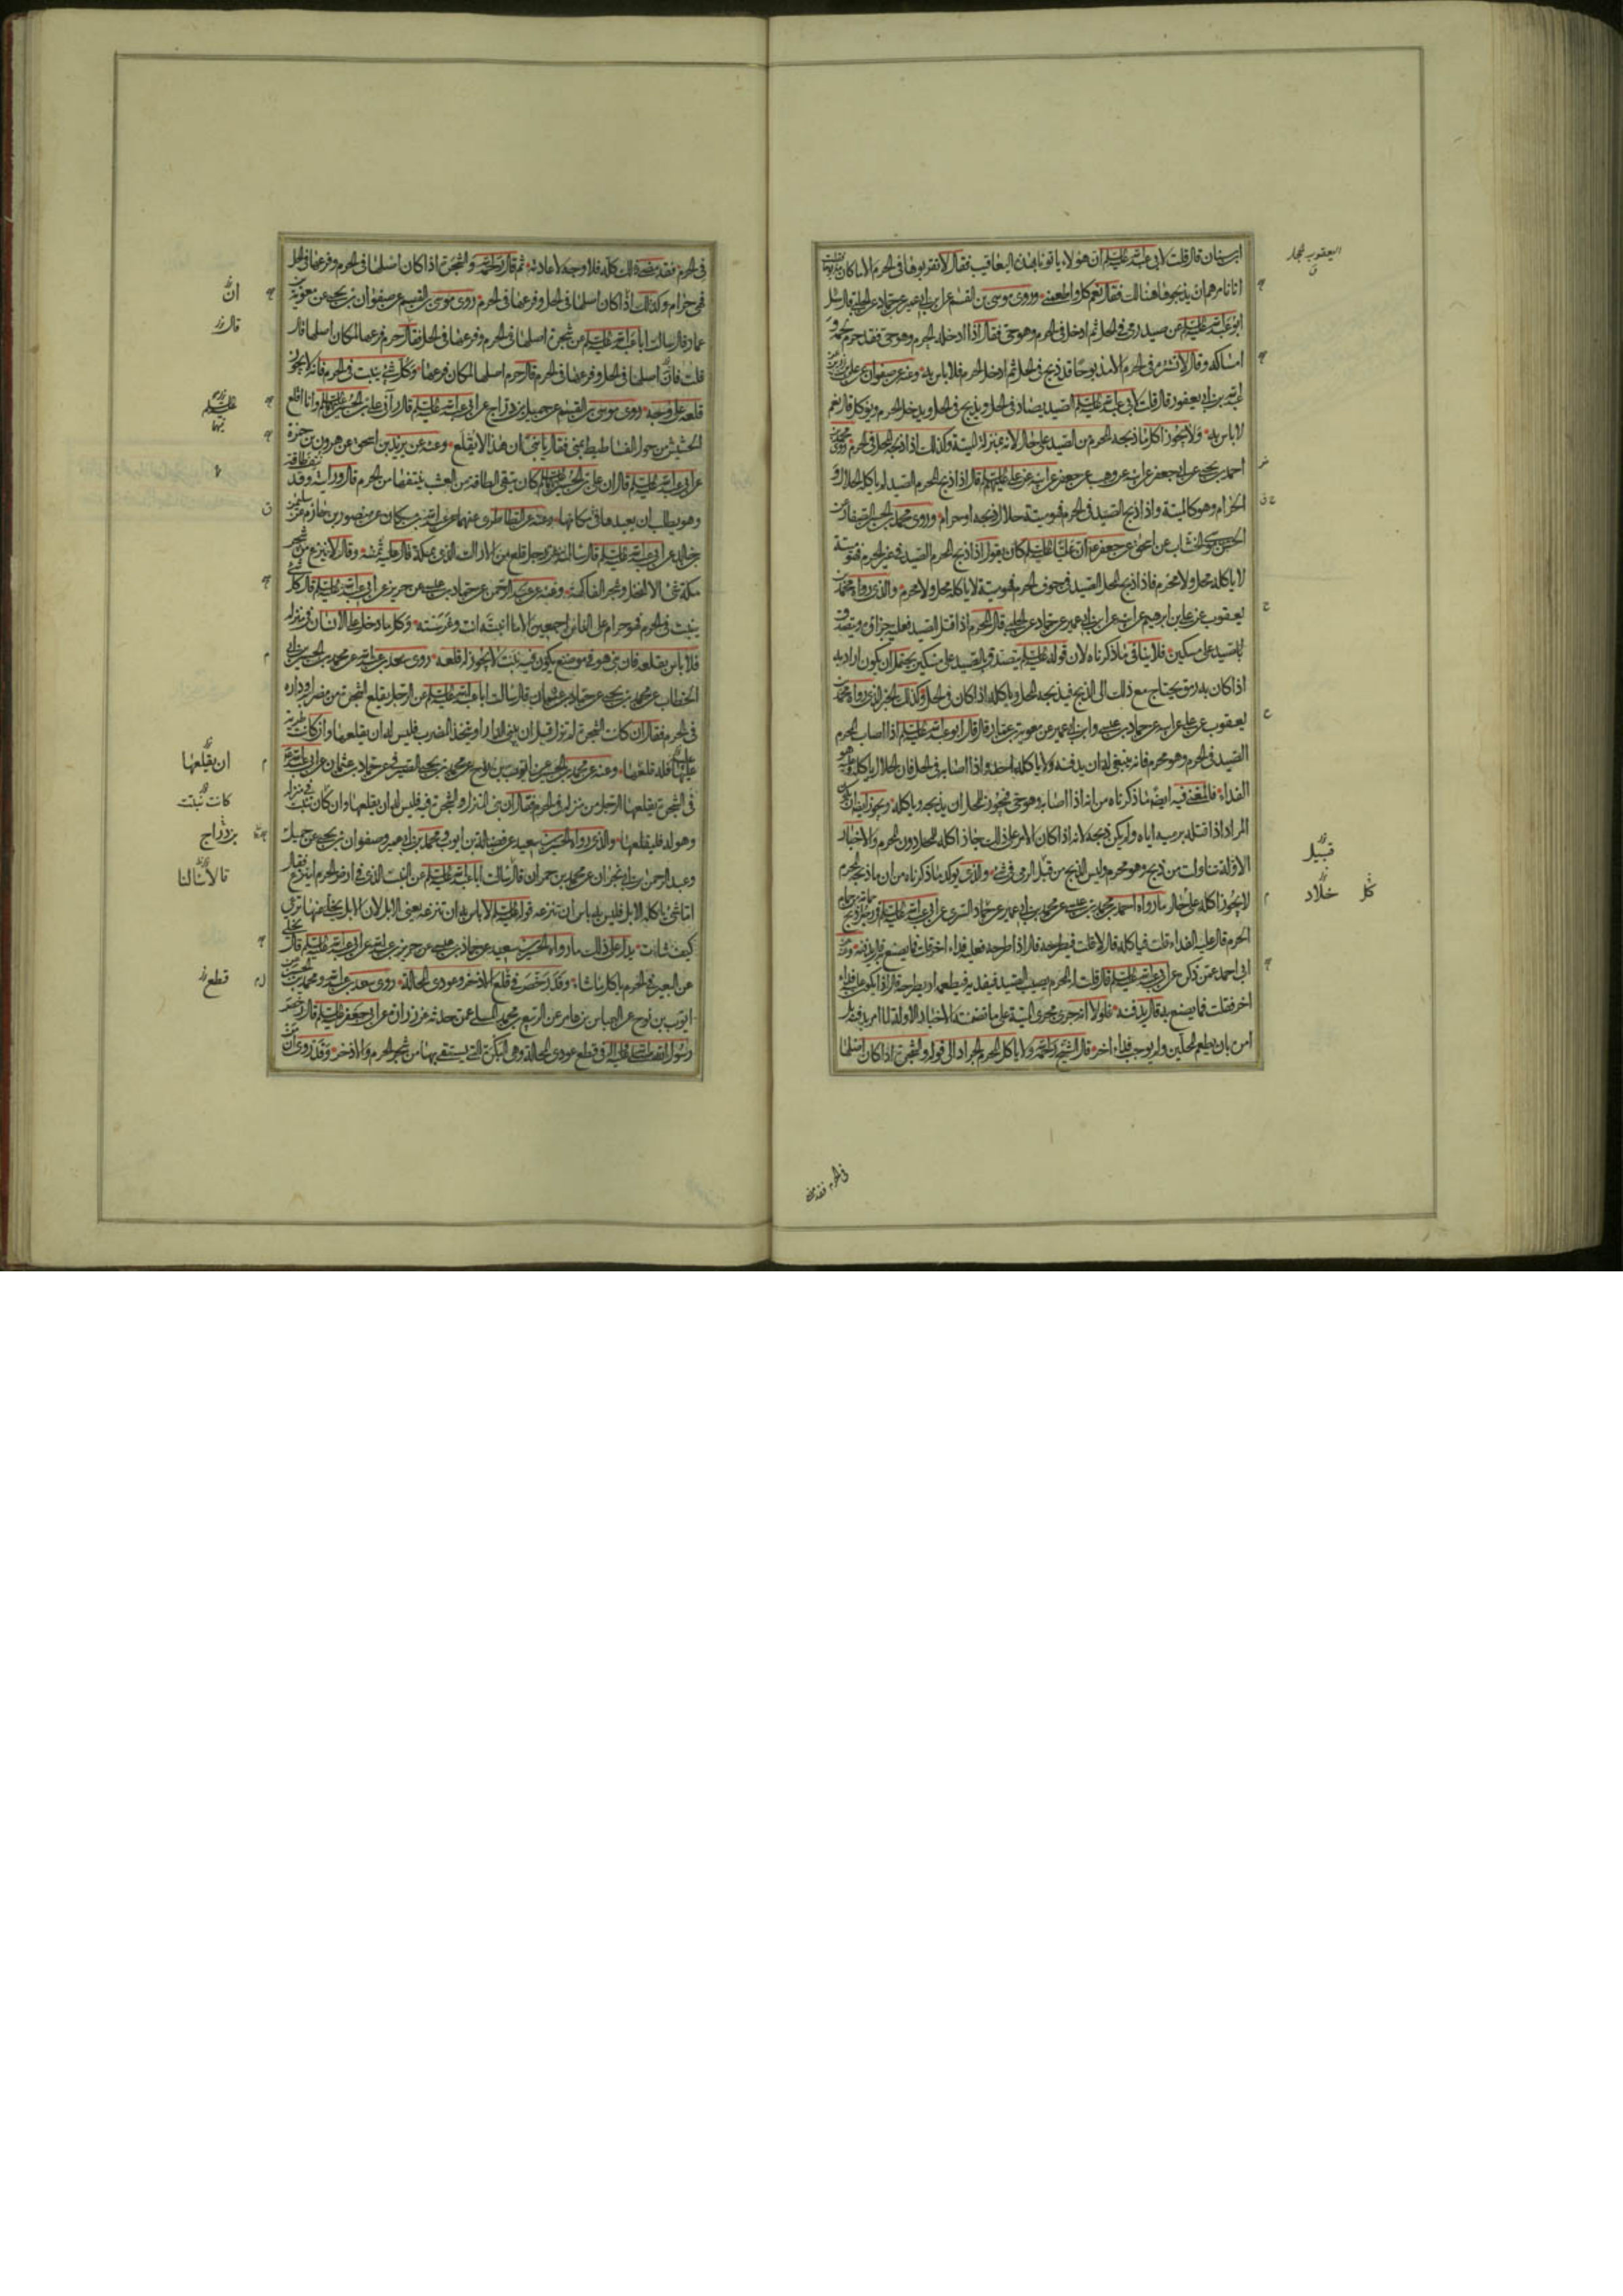 ابن سنان قال قلت لابي عبد الله عليه السلم ان هؤلاء ياتونا بهذه اليعاقيب فقال لا تقربوها في الحرم الا ما كان مذبوحا
انا نامرهم ان يذبحوها هنالك فقال نعم كل واطعمني وروى موسى بن القسم عن ابن ابي عمير عن حماد عن الحلبي قال سئل
ابو عبد الله عليه السلم عن صيد رمي في الحل ثم ادخل في الحرم وهو حي فقال اذا ادخله الحرم وهو حي فقد حرم لحمه و
امساكه وقال لا تشتره في الحرم الا مذبوحا قد ذبح في الحل ثم ادخل الحرم فلا باس به وعنه عن صفوان عن
عبد الله بن ابي يعفور قال قلت لابي عبد الله عليه السلم الصيد يصاد في الحل ويذبح في الحل ويدخل الحرم ويؤكل قال نعم
لا باس به ولا يجوز اكل ما ذبحه المحرم من الصيد على حال لانه بمنزلة الميتة وكذلك اذا ذبحه المحل في الحرم روى محمد بن
احمد بن يحيى عن ابي جعفر عن ابيه عن وهب عن جعفر عن ابيه عن علي عليهم السلم قال اذا ذبح المحرم الصيد لم ياكله الحلال و
الحرام وهو كالميتة واذا ذبح الصيد في الحرم فهو ميتة حلال ذبحه او حرام وروى محمد بن الحسن الصفار عن
الحسن بن موسى الخشاب عن اسحق عن جعفر ان عليا عليه السلم كان يقول اذا ذبح المحرم الصيد في غير الحرم فهو ميتة
لا ياكله محل ولا محرم فاذا ذبح المحل الصيد في جوف الحرم فهو ميتة لا ياكله محل ولا محرم والذي رواه محمد بن
يعقوب عن علي بن ابرهيم عن ابيه عن ابن ابي عمير عن حماد عن الحلبي قال المحرم اذا قتل الصيد فعليه جزاؤه ويتصدق
بالصيد على مسكين فلا ينافي ما ذكرناه لان قوله عليه السلم يتصدق بالصيد على مسكين يحتمل ان يكون اراد به
اذا كان به رمق يحتاج مع ذلك الى الذبح فيذبحه المحل وياكله اذا كان في الحل وكذلك الخبر الذي رواه محمد بن
يعقوب عن علي عن ابيه عن حماد بن عيسى وابن ابي عمير عن معوية بن عمار قال قال ابو عبد الله عليه السلم اذا اصاب المحرم
الصيد في الحرم وهو محرم فانه ينبغي له ان يدفنه ولا ياكله احد واذا اصابه في الحل فان الحلال ياكله وعليه هو
الفداء فالمعنى فيه ايضا ما ذكرناه من انه اذا اصابه وهو حي فيجوز للمحل ان يذبحه وياكله ويجوز ايضا ان يكون
المراد اذا قتله برميه اياه ولم يكن ذبحه لانه اذا كان الامر على ذلك جاز اكله للمحل دون المحرم والاخبار
الاوله تناولت من ذبح وهو محرم وليس الذبح من قبل الرمي في شئ والذي يؤكد ما ذكرناه من ان ما ذبحه المحرم
لا يجوز اكله على حال ما رواه احمد بن محمد بن عيسى عن محمد بن ابي عمير عن خلاد السري عن ابي عبد الله عليه السلم في رجل ذبح حمامة من حمام
الحرم قال عليه الفداء قلت فياكله قال لا قلت فيطرحه قال اذا طرحه فعليه فداء اخر قلت فما يصنع به قال يدفنه وعنه عن
ابي احمد عمن ذكره عن ابي عبد الله عليه السلم قال قلت له المحرم يصيب الصيد فيفديه فيطعمه او يطرحه قال اذا يكون عليه فداء
اخر فقلت فما يصنع به قال يدفنه فلولا انه جرى مجرى الميتة على ما تضمنت الاخبار الاوله لما امر بدفنه بل
امره بان يطعم المحلين ولم يوجب فداء اخر قال الشيخ رحمه الله ولا ياكل المحرم الجراد الى قوله والشجرة اذا كان اصلها
في الحرم فقد مضى
قبيل
كل
خلاد
في الحرم فقد مضى ذلك كله فلا وجه لاعادته ثم قال رحمه الله والشجرة اذا كان اصلها في الحرم وفرعها في الحل
فهي حرام وكذلك اذا كان اصلها في الحل وفرعها في الحرم روى موسى بن القسم عن صفوان بن يحيى عن معوية بن
عمار قال سالت ابا عبد الله عليه السلم عن شجرة اصلها في الحرم وفرعها في الحل فقال حرم فرعها لمكان اصلها قال
قلت فان اصلها في الحل وفرعها في الحرم قال حرم اصلها لمكان فرعها وكل شئ ينبت في الحرم فانه لا يجوز
قلعه على وجه روى موسى بن القسم عن جميل بن دراج عن ابي عبد الله عليه السلم قال رآني علي بن الحسين عليه السلم وانا اقلع
الحشيش من حول الفساطيط بمنى فقال يا بني ان هذا لا يقلع وعنه عن يزيد بن اسحق عن هرون بن حمزة
عن ابي عبد الله عليه السلم قال ان علي بن الحسين عليهما السلم كان يتقي الطاقة من العشب ينتفها من الحرم قال ورايته وقد نتف طاقة
وهو يطلب ان يعيدها في مكانها وعنه عن الطاطري عنهما عن عبد الله بن مسكان عن منصور بن حازم عن سليمن بن
خالد عن ابي عبد الله عليه السلم قال سالته عن رجل قلع من الاراك الذي بمكة قال عليه ثمنه وقال لا ينزع من شجر
مكة شئ الا النخل وشجر الفاكهة وعنه عن عبد الرحمن عن حماد بن عيسى عن حريز عن ابي عبد الله عليه السلم قال كل شئ
ينبت في الحرم فهو حرام على الناس اجمعين الا ما انبته انت وغرسته وكل ما دخل على الانسان في منزله
فلا باس بقلعه فان بنى هو في موضع يكون فيه نبت لا يجوز له قلعه روى سعد بن عبد الله عن محمد بن الحسين بن ابي
الخطاب عن محمد بن يحيى عن حماد بن عثمان قال سالت ابا عبد الله عليه السلم عن الرجل يقلع الشجرة من مضربه او داره
في الحرم فقال ان كانت الشجرة لم تزل قبل ان يبني الدار او يتخذ المضرب فليس له ان يقلعها وان كانت طرية
عليها فله قلعها وعنه عن محمد بن الحسين عن ايوب بن نوح عن محمد بن يحيى الصيرفي عن حماد بن عثمان عن ابي عبد الله عليه السلم
في الشجرة يقلعها الرجل من منزله في الحرم فقال ان بنى المنزل والشجرة فيه فليس له ان يقلعها وان كان نبتت في منزله
وهو له فليقلعها والذي رواه الحسين بن سعيد عن فضالة بن ايوب ومحمد بن ابي عمير وصفوان بن يحيى عن جميل
وعبد الرحمن بن ابي نجران عن محمد بن حمران قال سالت ابا عبد الله عليه السلم عن النبت الذي في ارض الحرم اينزع فقال
اما شئ تاكله الابل فليس به باس ان تنزعه قوله عليه السلم لا باس به ان تنزعه يعني الابل لان الابل يخلى عنها ترعى
كيف شاءت يدل على ذلك ما رواه الحسين بن سعيد عن حماد بن عيسى عن حريز بن عبد الله عن ابي عبد الله عليه السلم قال يخلى
عن البعير في الحرم ياكل ما شاء وقد رخص في قلع الاذخر وعودي المحالة روى سعد بن عبد الله عن محمد بن الحسين عن
ايوب بن نوح عن العباس بن عامر عن الربيع بن محمد المسلي عن حدثه عن زرارة عن ابي جعفر عليه السلم قال رخص
رسول الله صلى الله عليه واله في قطع عودي المحالة وهي البكرة التي يستقى بها من شجر الحرم والاذخر وقد روى ان
ان
قال
عليه السلم
ان يقلعها
كانت نبتت
بن دراج
قالا سالنا
قطع